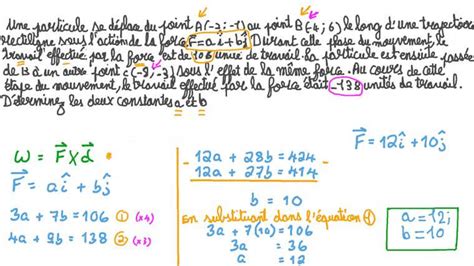 Une particule se déplace du point A(-7; -1) au point B(-4; 6) le long d'une trajectoire
rectiligne sous l'action de la force F⃗=aî+bĵ. Durant cette phase du mouvement, le
travail effectué par la force est de 106 unité de travail. La particule est ensuite passée
de B à un autre point C(-8; -3) sous l'effet de la même force. Au cours de cette
étape du mouvement, le travail effectué par la force était -138 unités du travail.
Déterminez les deux constantes a et b
F⃗=12î+10ĵ
W = F⃗ × d⃗
F⃗ = aî + bĵ
3a + 7b = 106 ① (×4)
4a + 9b = 138 ② (×3)
12a + 28b = 424
12a + 27b = 414
b = 10
en substituant dans l'équation ①
3a + 7(10) = 106
3a = 36
a = 12
a = 12;
b = 10